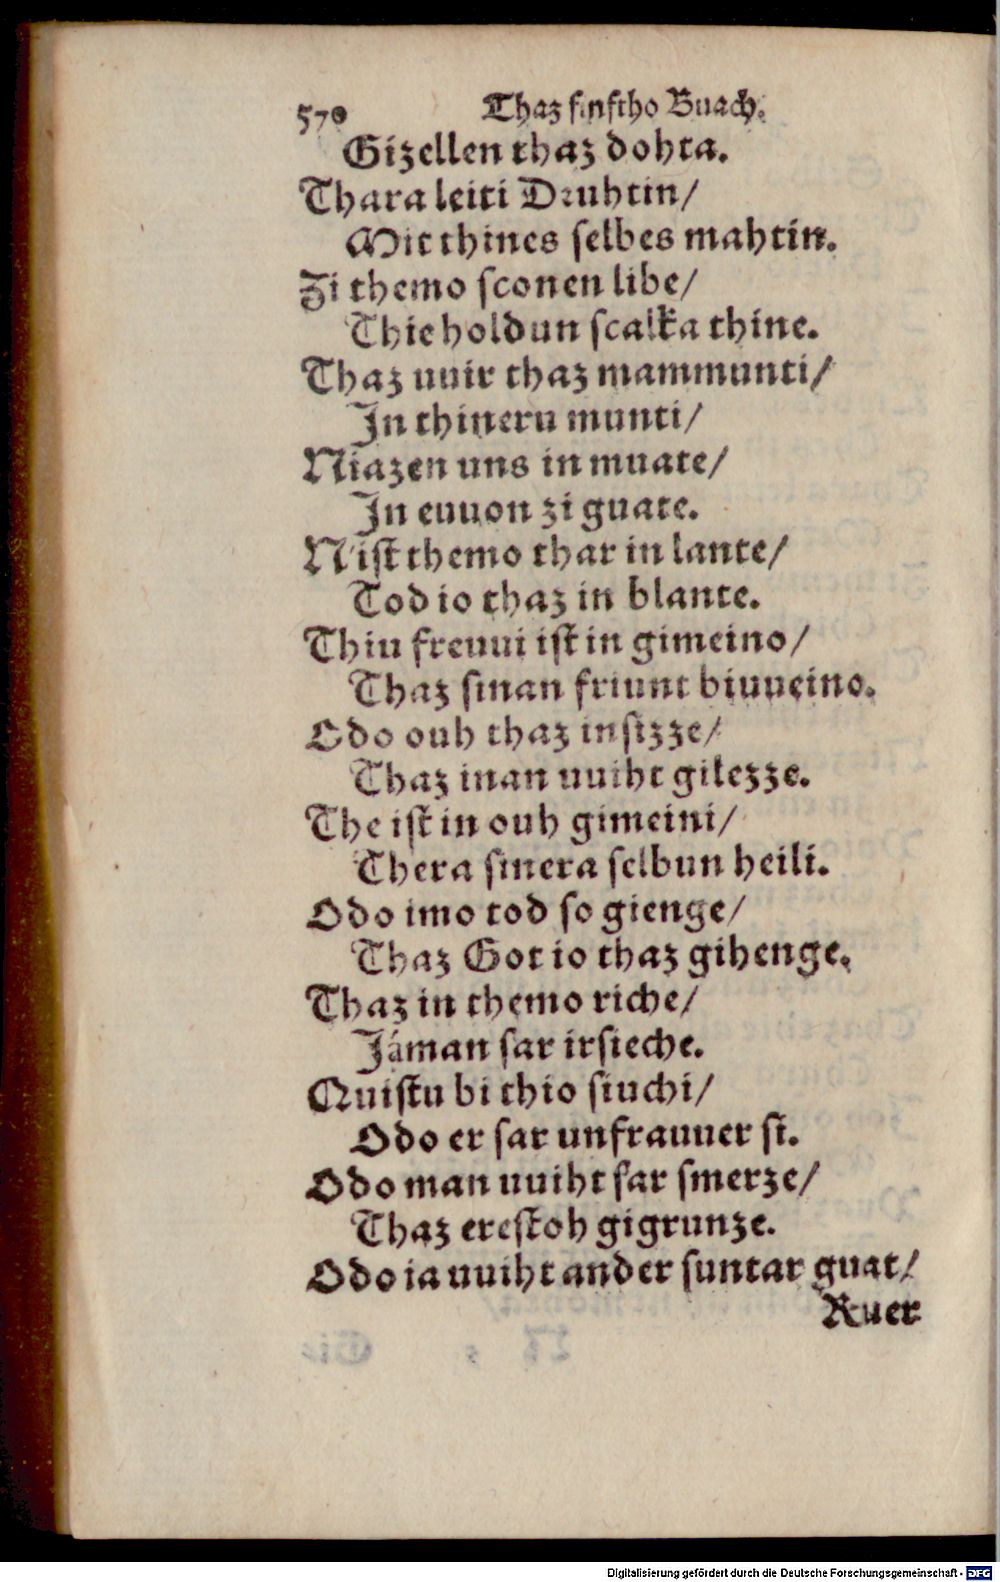 570 Thaz finftho Buach.
Gizellen thaz dohta.
Thara leiti Druhtin/
Mit thines selbes mahtin.
Zi themo sconen libe/
Thie holdun scalka thine.
Thaz uuir thaz mammunti/
In thineru munti/
Niazen uns in muate/
In euuon zi guate.
Nist themo thar in lante/
Tod io thaz in blante.
Thiu freuui ist in gimeino/
Thaz sinan friunt biuueino.
Odo ouh thaz insizze/
Thaz inan uuiht gilezze.
The ist in ouh gimeini/
Thera sinera selbun heili.
Odo imo tod so gienge/
Thaz Got io thaz gihenge.
Thaz in themo riche/
Jáman sar irsieche.
Quistu bi thio siuchi/
Odo er sar unfrauuer si.
Odo man uuiht sar smerze/
Thaz erestoh gigrunze.
Odo ia uuiht ander suntar guat/
Ruer
Digitalisierung gefördert durch die Deutsche Forschungsgemeinschaft - DFG